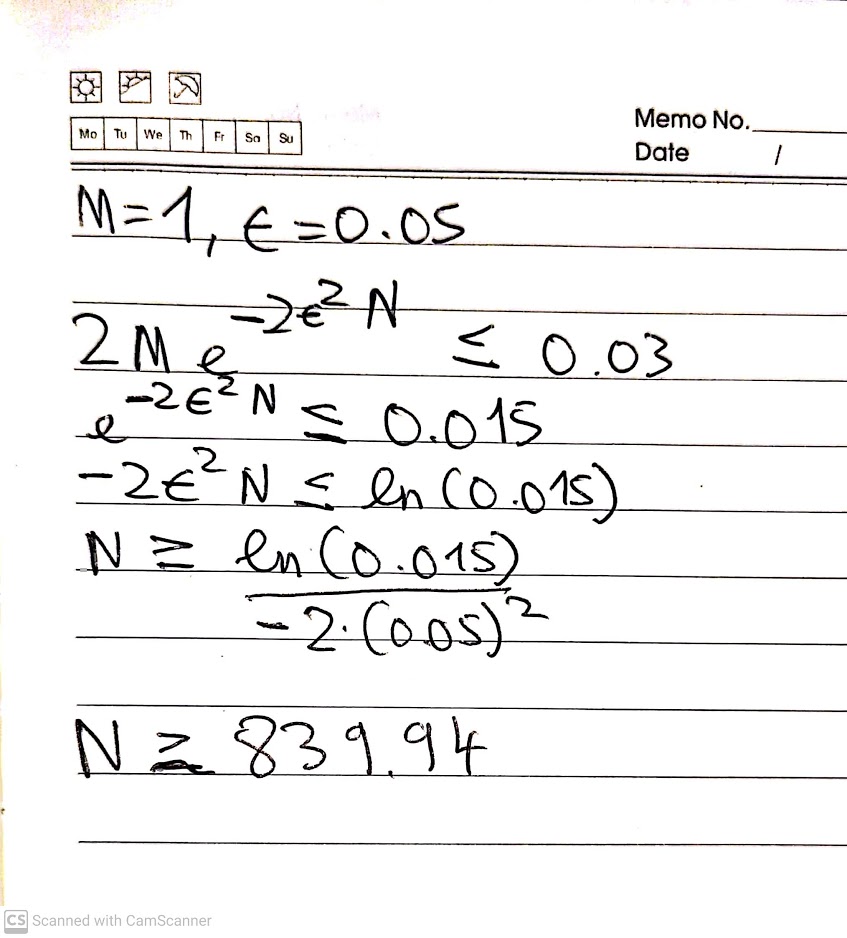 Mo Tu We Th Fr Sa Su
Memo No.
Date /
M=1, ϵ=0.05
2Me^{-2ϵ^2 N} ≤ 0.03
e^{-2ϵ^2 N} ≤ 0.015
-2ϵ^2 N ≤ ln(0.015)
N ≥ ln(0.015)
-2·(0.05)^2
N ≥ 839.94
CS Scanned with CamScanner